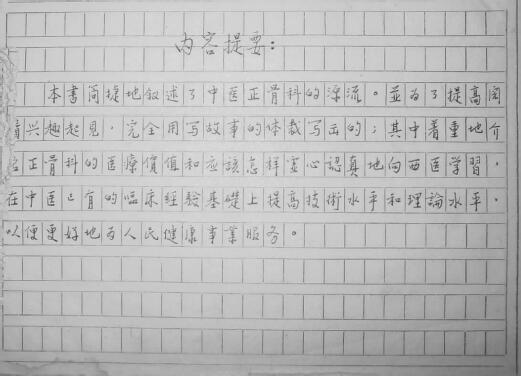 内容提要：
本書简捷地叙述了中医正骨科的源流。並为了提高阅
着兴趣起見，完全用写故事的体裁写出的；其中着重地介
绍正骨科的医療價值和应該怎样虚心認真地向西医学習，
在中医已有的臨床經驗基礎上提高技術水平和理論水平，
以便更好地为人民健康事業服务。